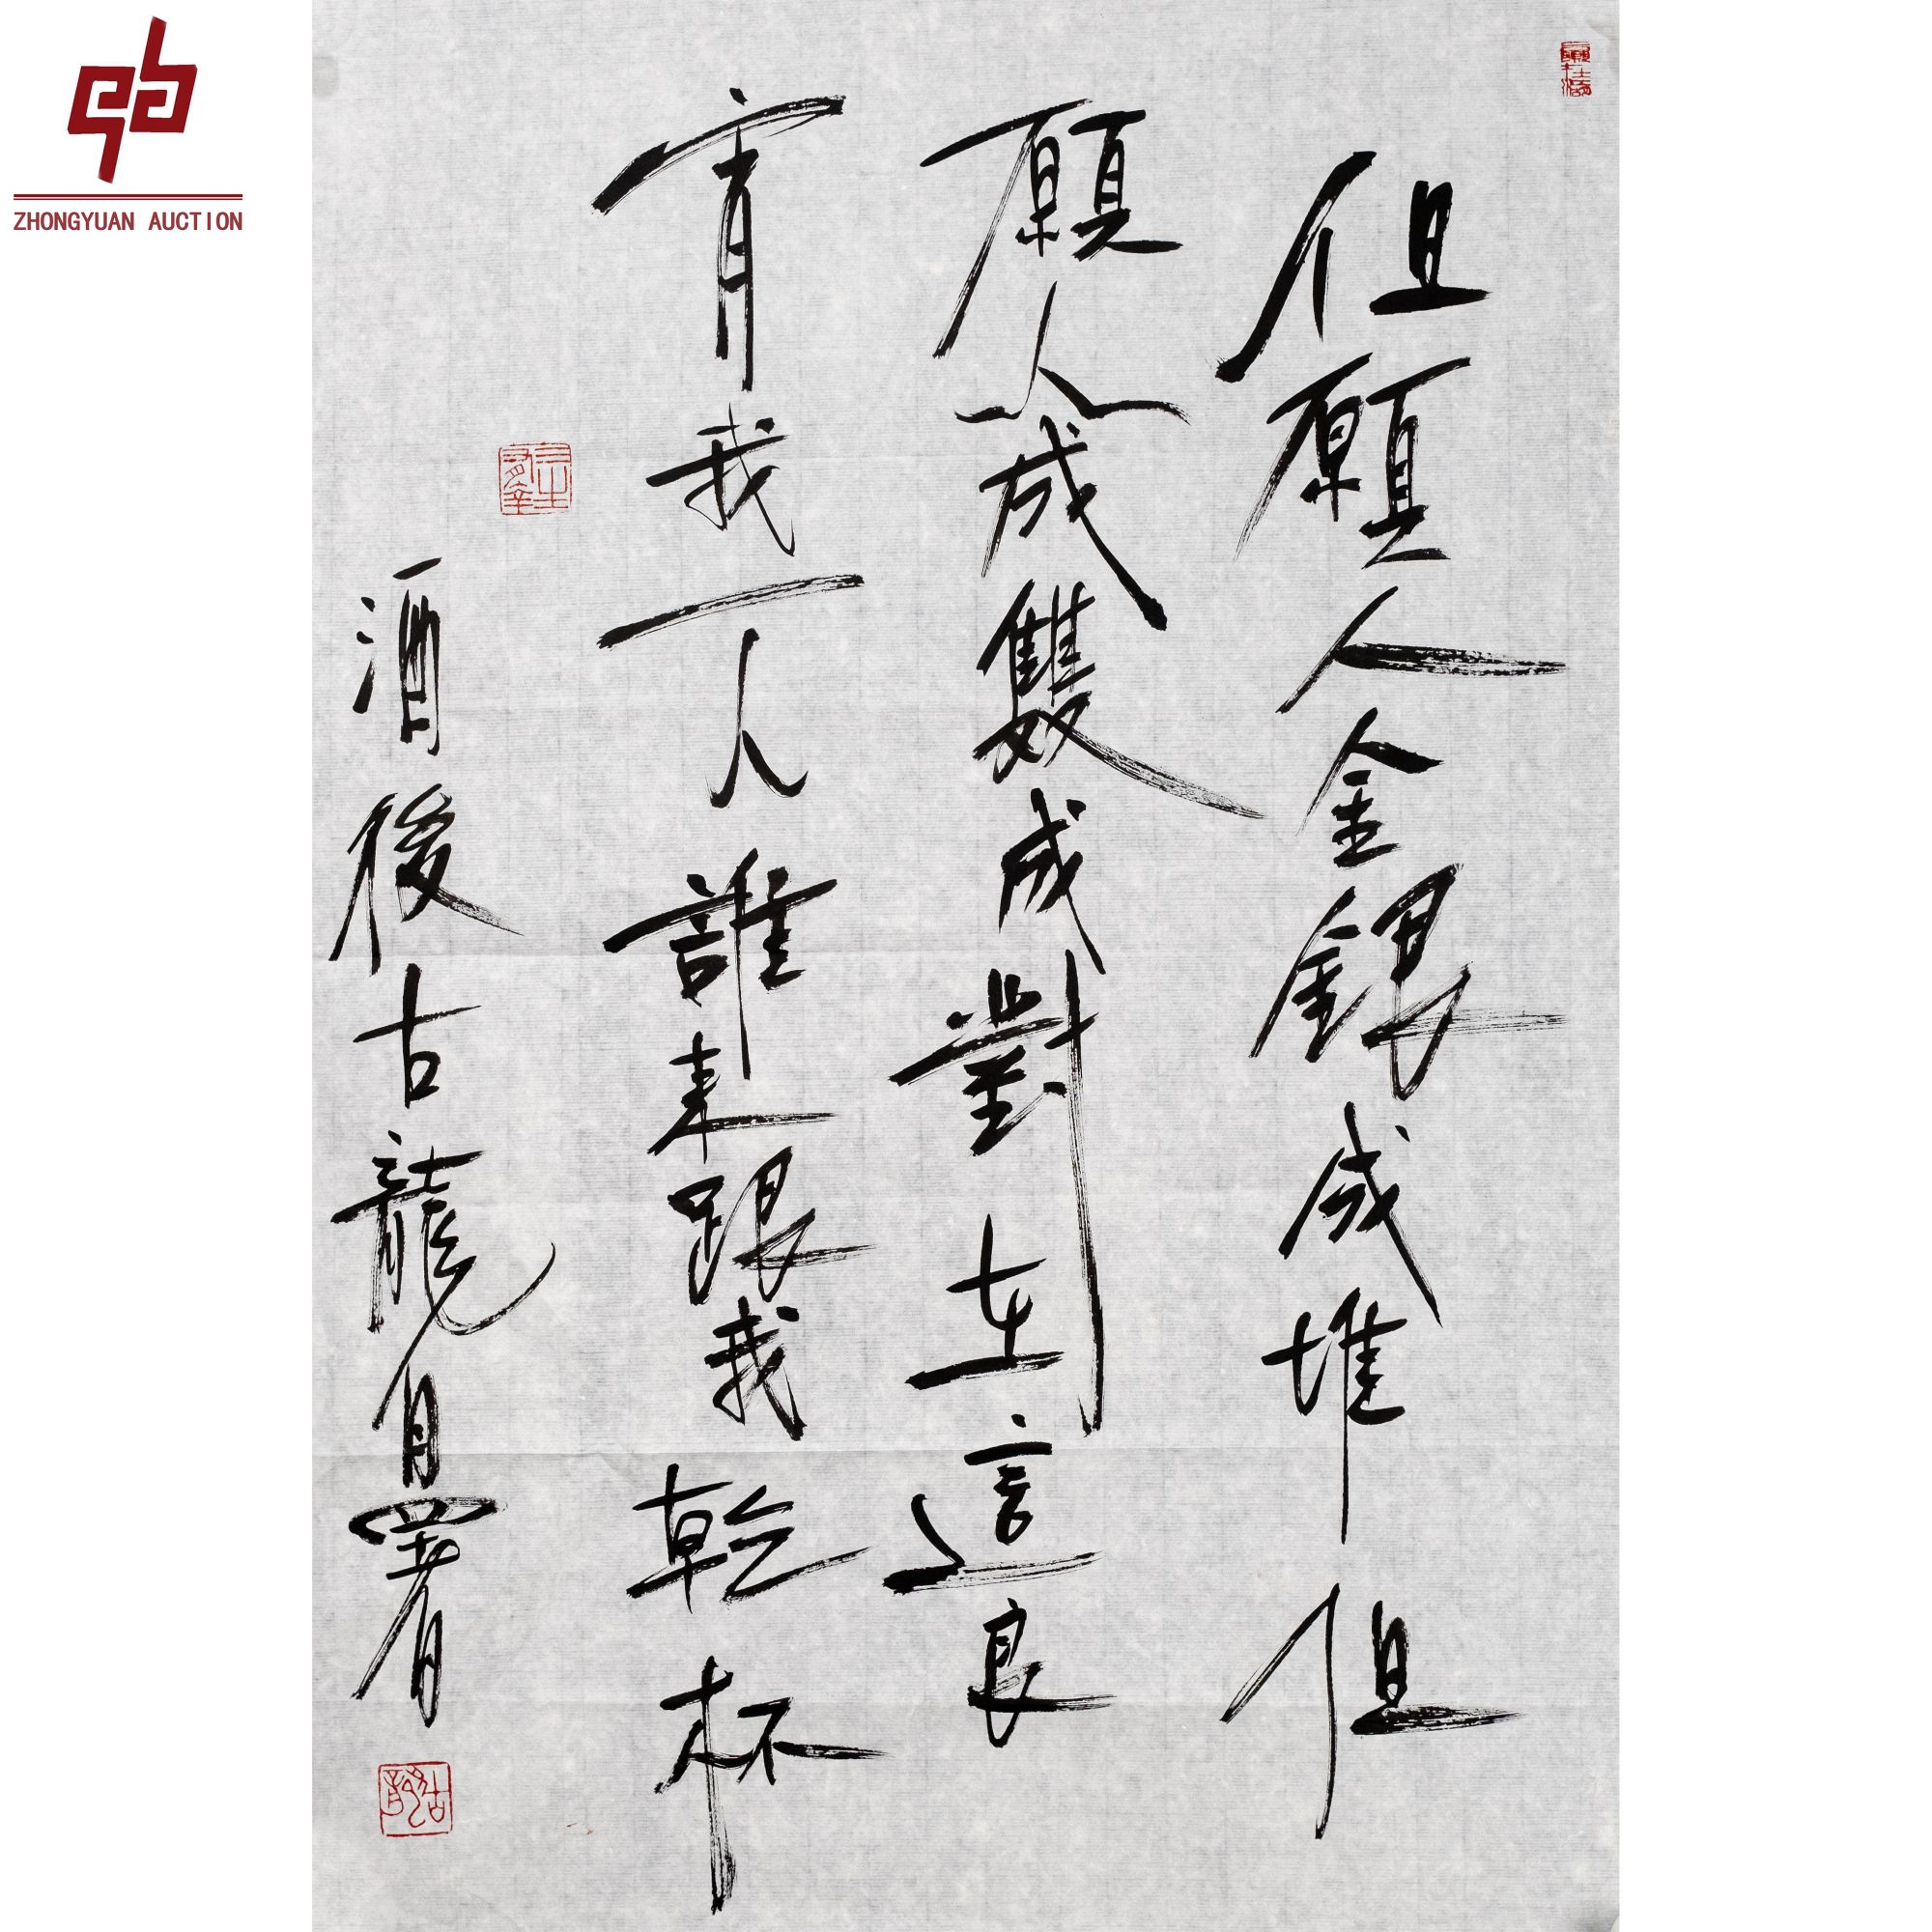 但願人金銀成堆但
願人成雙成對在這良
宵我一人誰來跟我乾杯
酒後古龍自署
ZHONGYUAN AUCTION